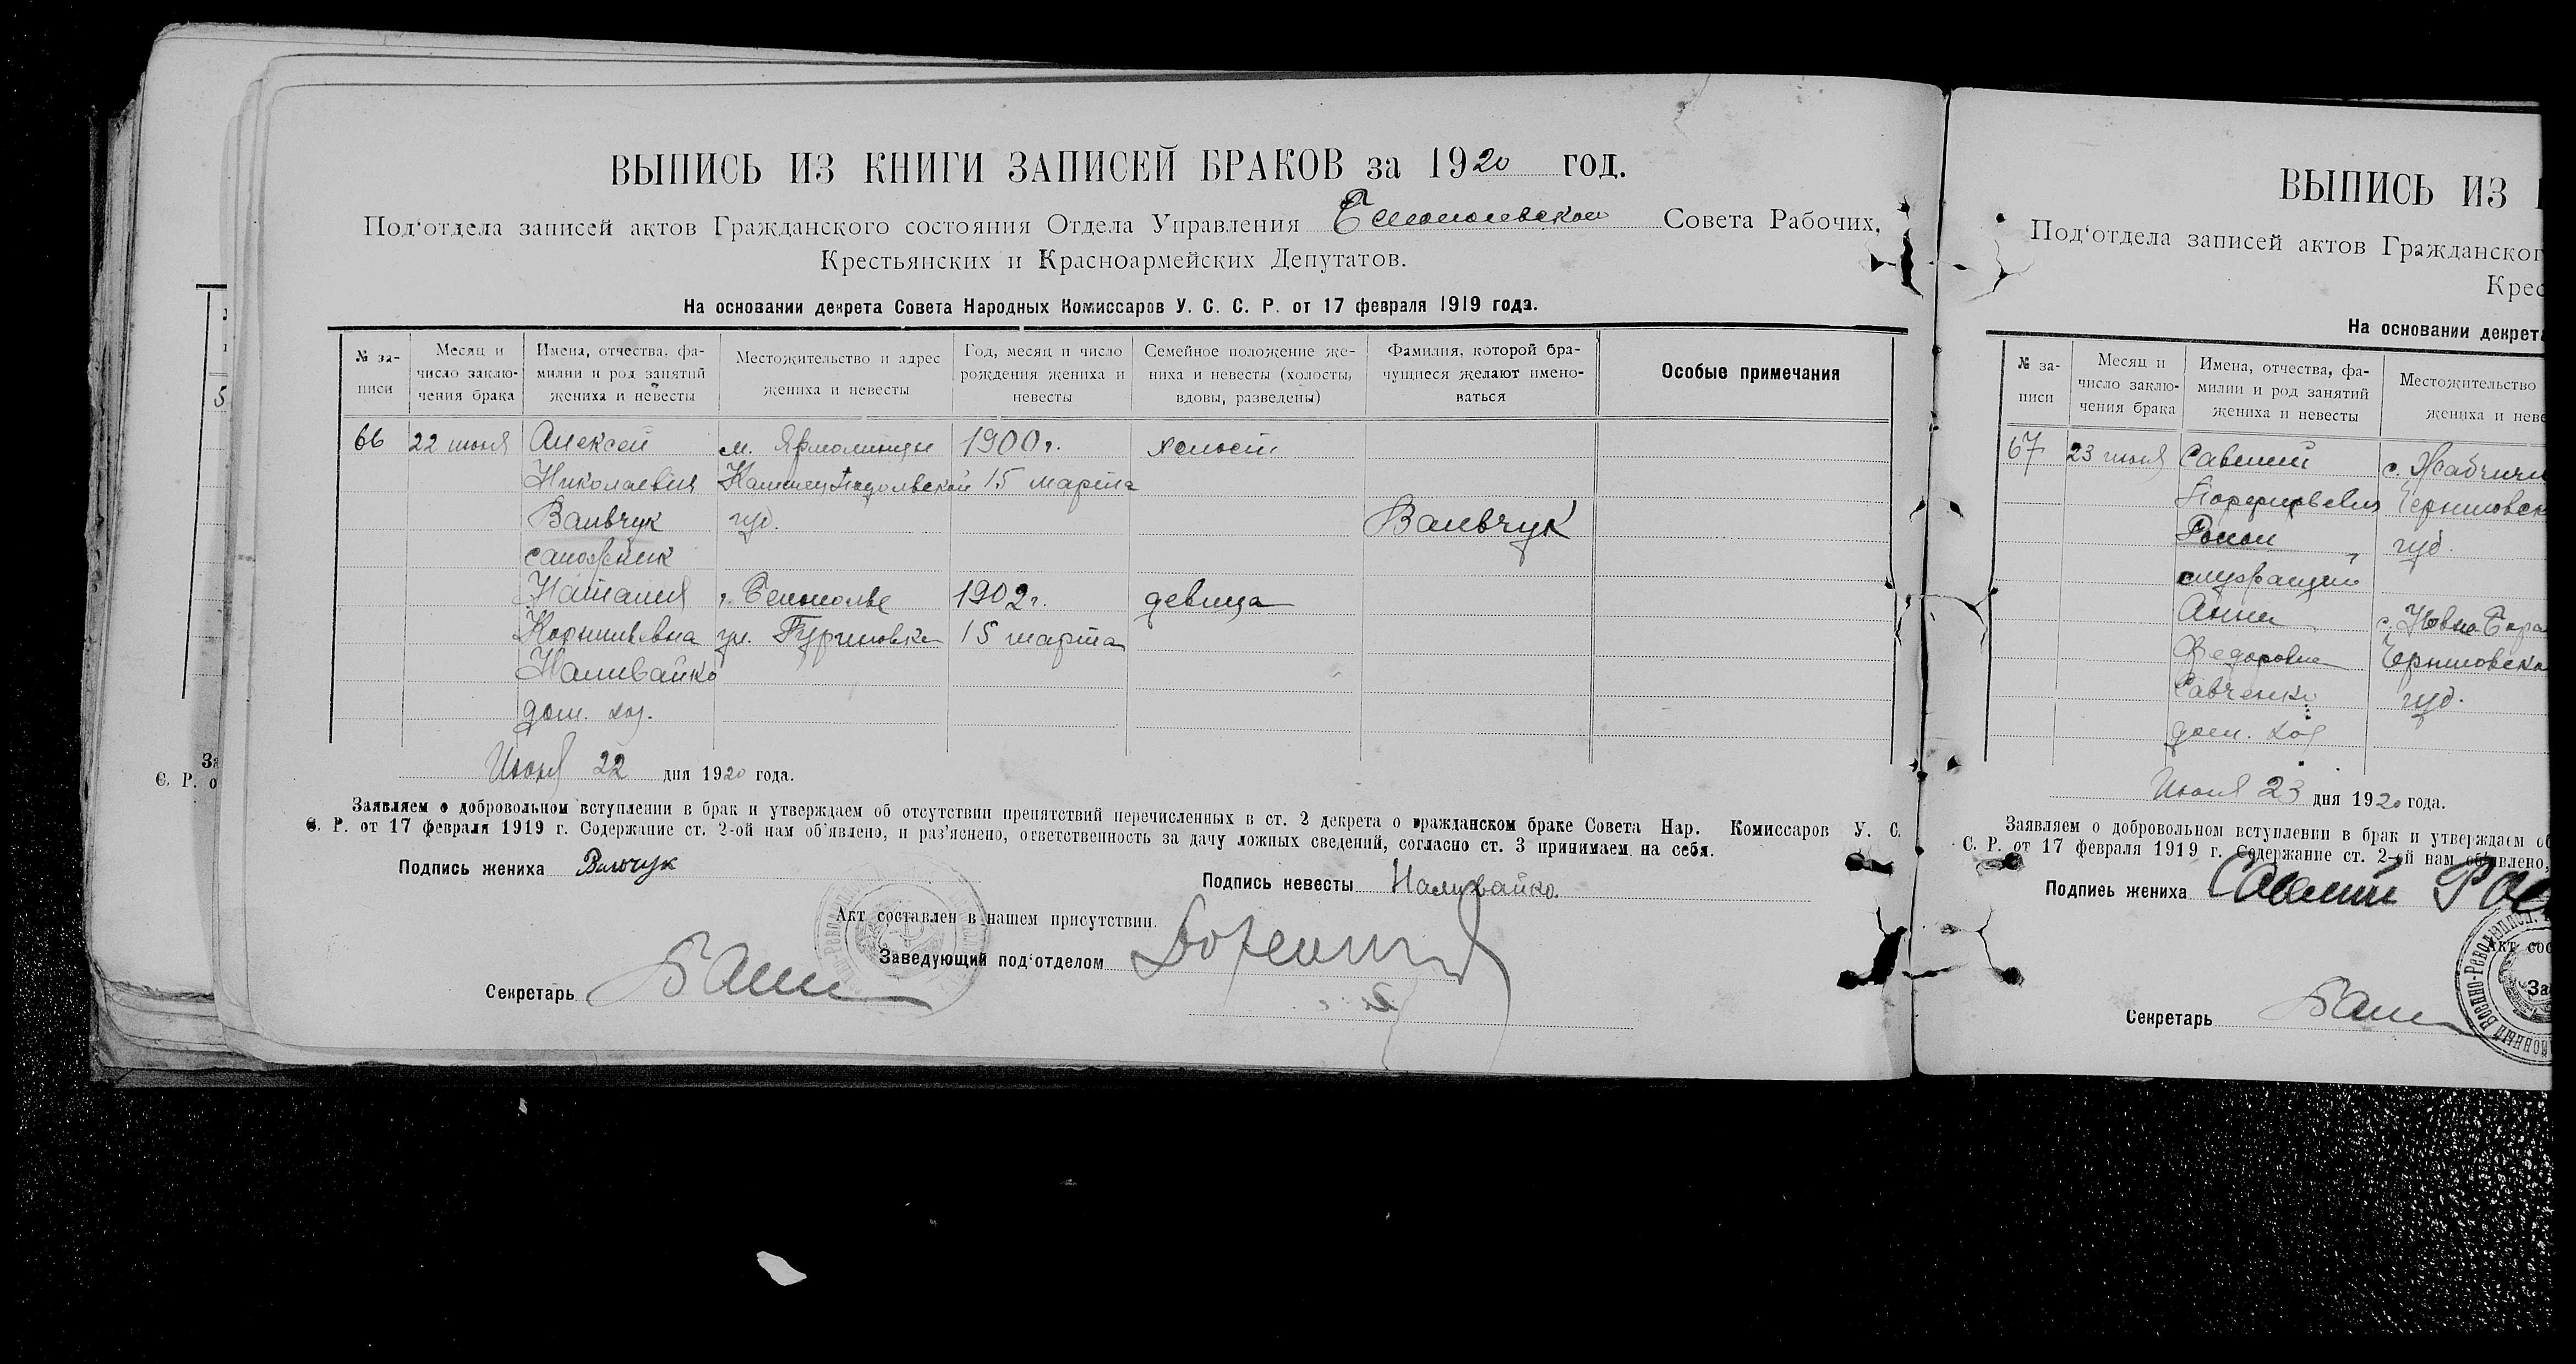 ВЫПИСЬ ИЗ КНИГИ ЗАПИСЕЙ БРАКОВ за 1920 год.
Под‘отдела записей актов Гражданского состояния Отдела Управления Совета Рабочих,
Крестьянских и Красноармейских Депутатов.
На основании декрета Совета Народных Комиссаров У. С. С. Р. от 17 февраля 1919 года.
№ за-
писи
Месяц и
число заклю-
чения брака
Имена, отчества, фа-
милии и род занятий
жениха и невесты
Местожительство и адрес
жениха и невесты
Год, месяц и число
рождения жениха и
невесты
Семейное положение же-
ниха и невесты (холосты,
вдовы, разведены)
Фамилия, которой бра-
чущиеся желают имено-
ваться
Особые примечания
66 22 июня Алексей м. Ярмолинцы 1900 г. холост
Николаевич Каменец Подольской 15 марта
Вавчук губ. Вавчук
сапожник
Наталия г. Белополье 1902 г. девица
Корниевна ул. 15 марта
Наливайко
дом. хоз.
Июня 22 дня 1920 года.
Заявляем о добровольном вступлении в брак и утверждаем об отсутствии препятствий перечисленных в ст. 2 декрета о гражданском браке Совета Нар. Комиссаров У. С.
С. Р. от 17 февраля 1919 г. Содержание ст. 2-ой нам об‘явлено, и раз‘яснено, ответственность за дачу ложных сведений, согласно ст. 3 принимаем на себя.
Подпись жениха
Подпись невесты Наливайко.
Акт составлен в нашем присутствии.
Заведующий под‘отделом
Секретарь
ВЫПИСЬ ИЗ
Под‘отдела записей актов Гражданског
Крес
На основании декрета
№ за-
писи
Месяц и
число заклю-
чения брака
Имена, отчества, фа-
милии и род занятий
жениха и невесты
Местожительство
жениха и неве
67 23 июня Савелий с.
Порфирьевич Черниговск
губ.
служащий
Анна с.
Федоровна Черниговско
Савченко губ.
дом. хоз
Июня 23 дня 1920 года.
Заявляем о добровольном вступлении в брак и утверждаем об
С. Р. от 17 февраля 1919 г. Содержание ст. 2-ой нам об‘явлено,
Подпись жениха Савелий
Акт сос
За
Секретарь